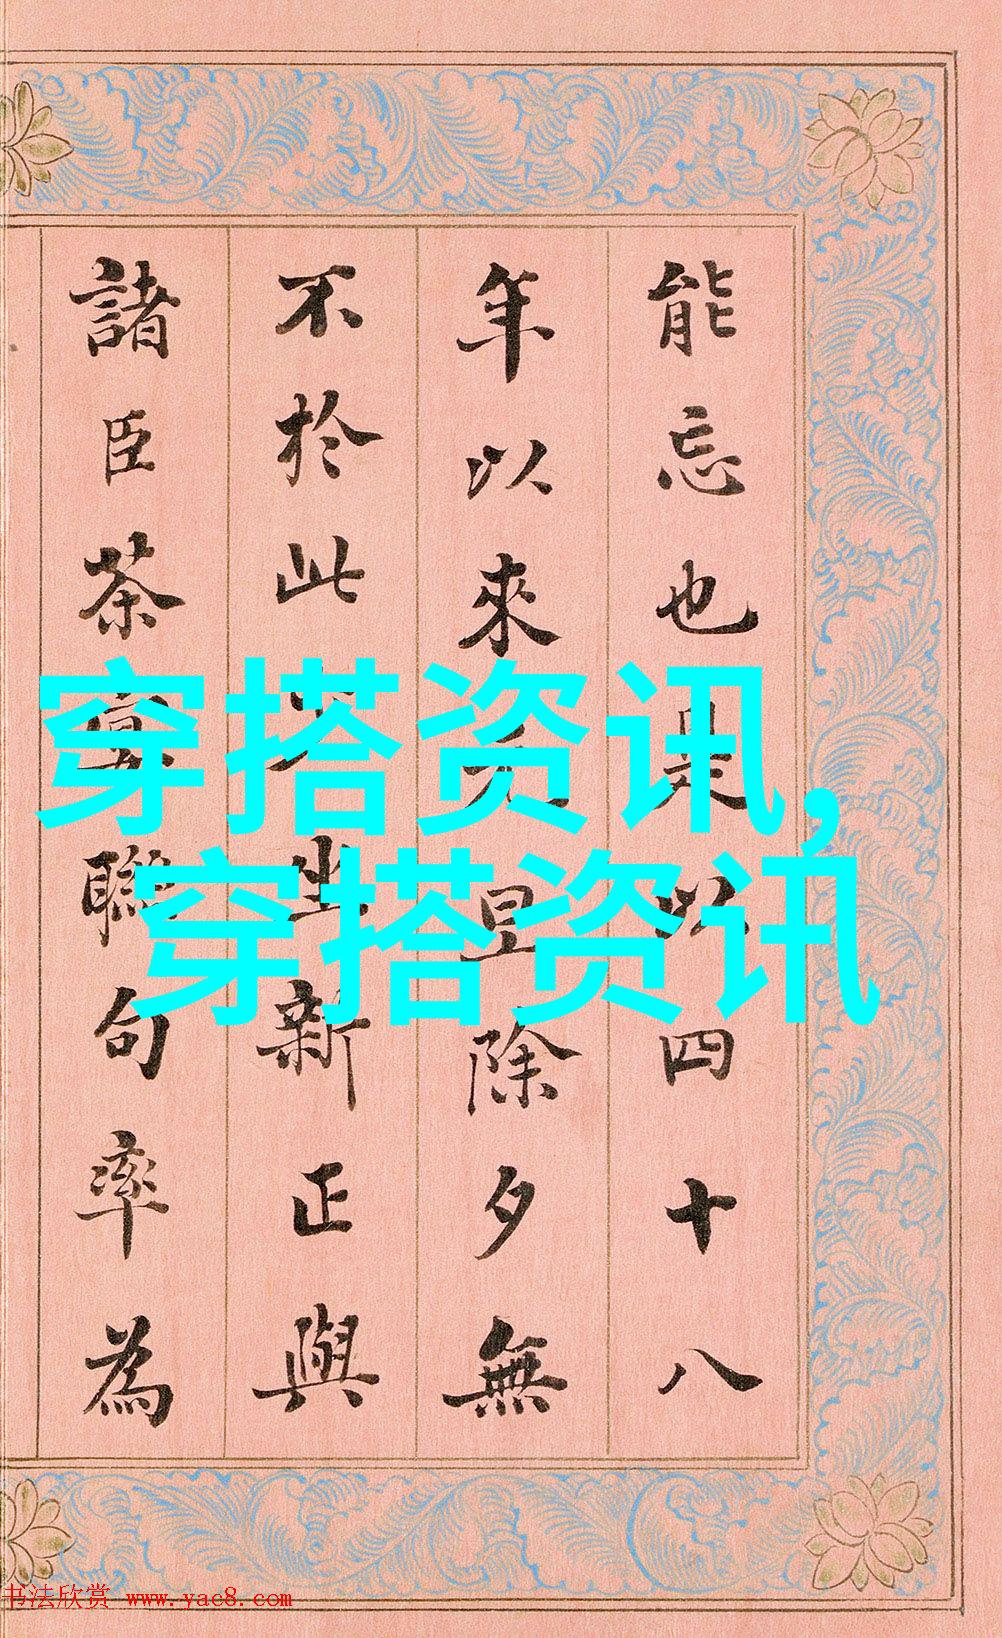 能忘也是以四十八
年以來元旦除夕無
不於此坐新正與
諸臣茶宴聯句率為
穿搭资讯,
穿搭资讯
书法欣赏 www.yac8.com